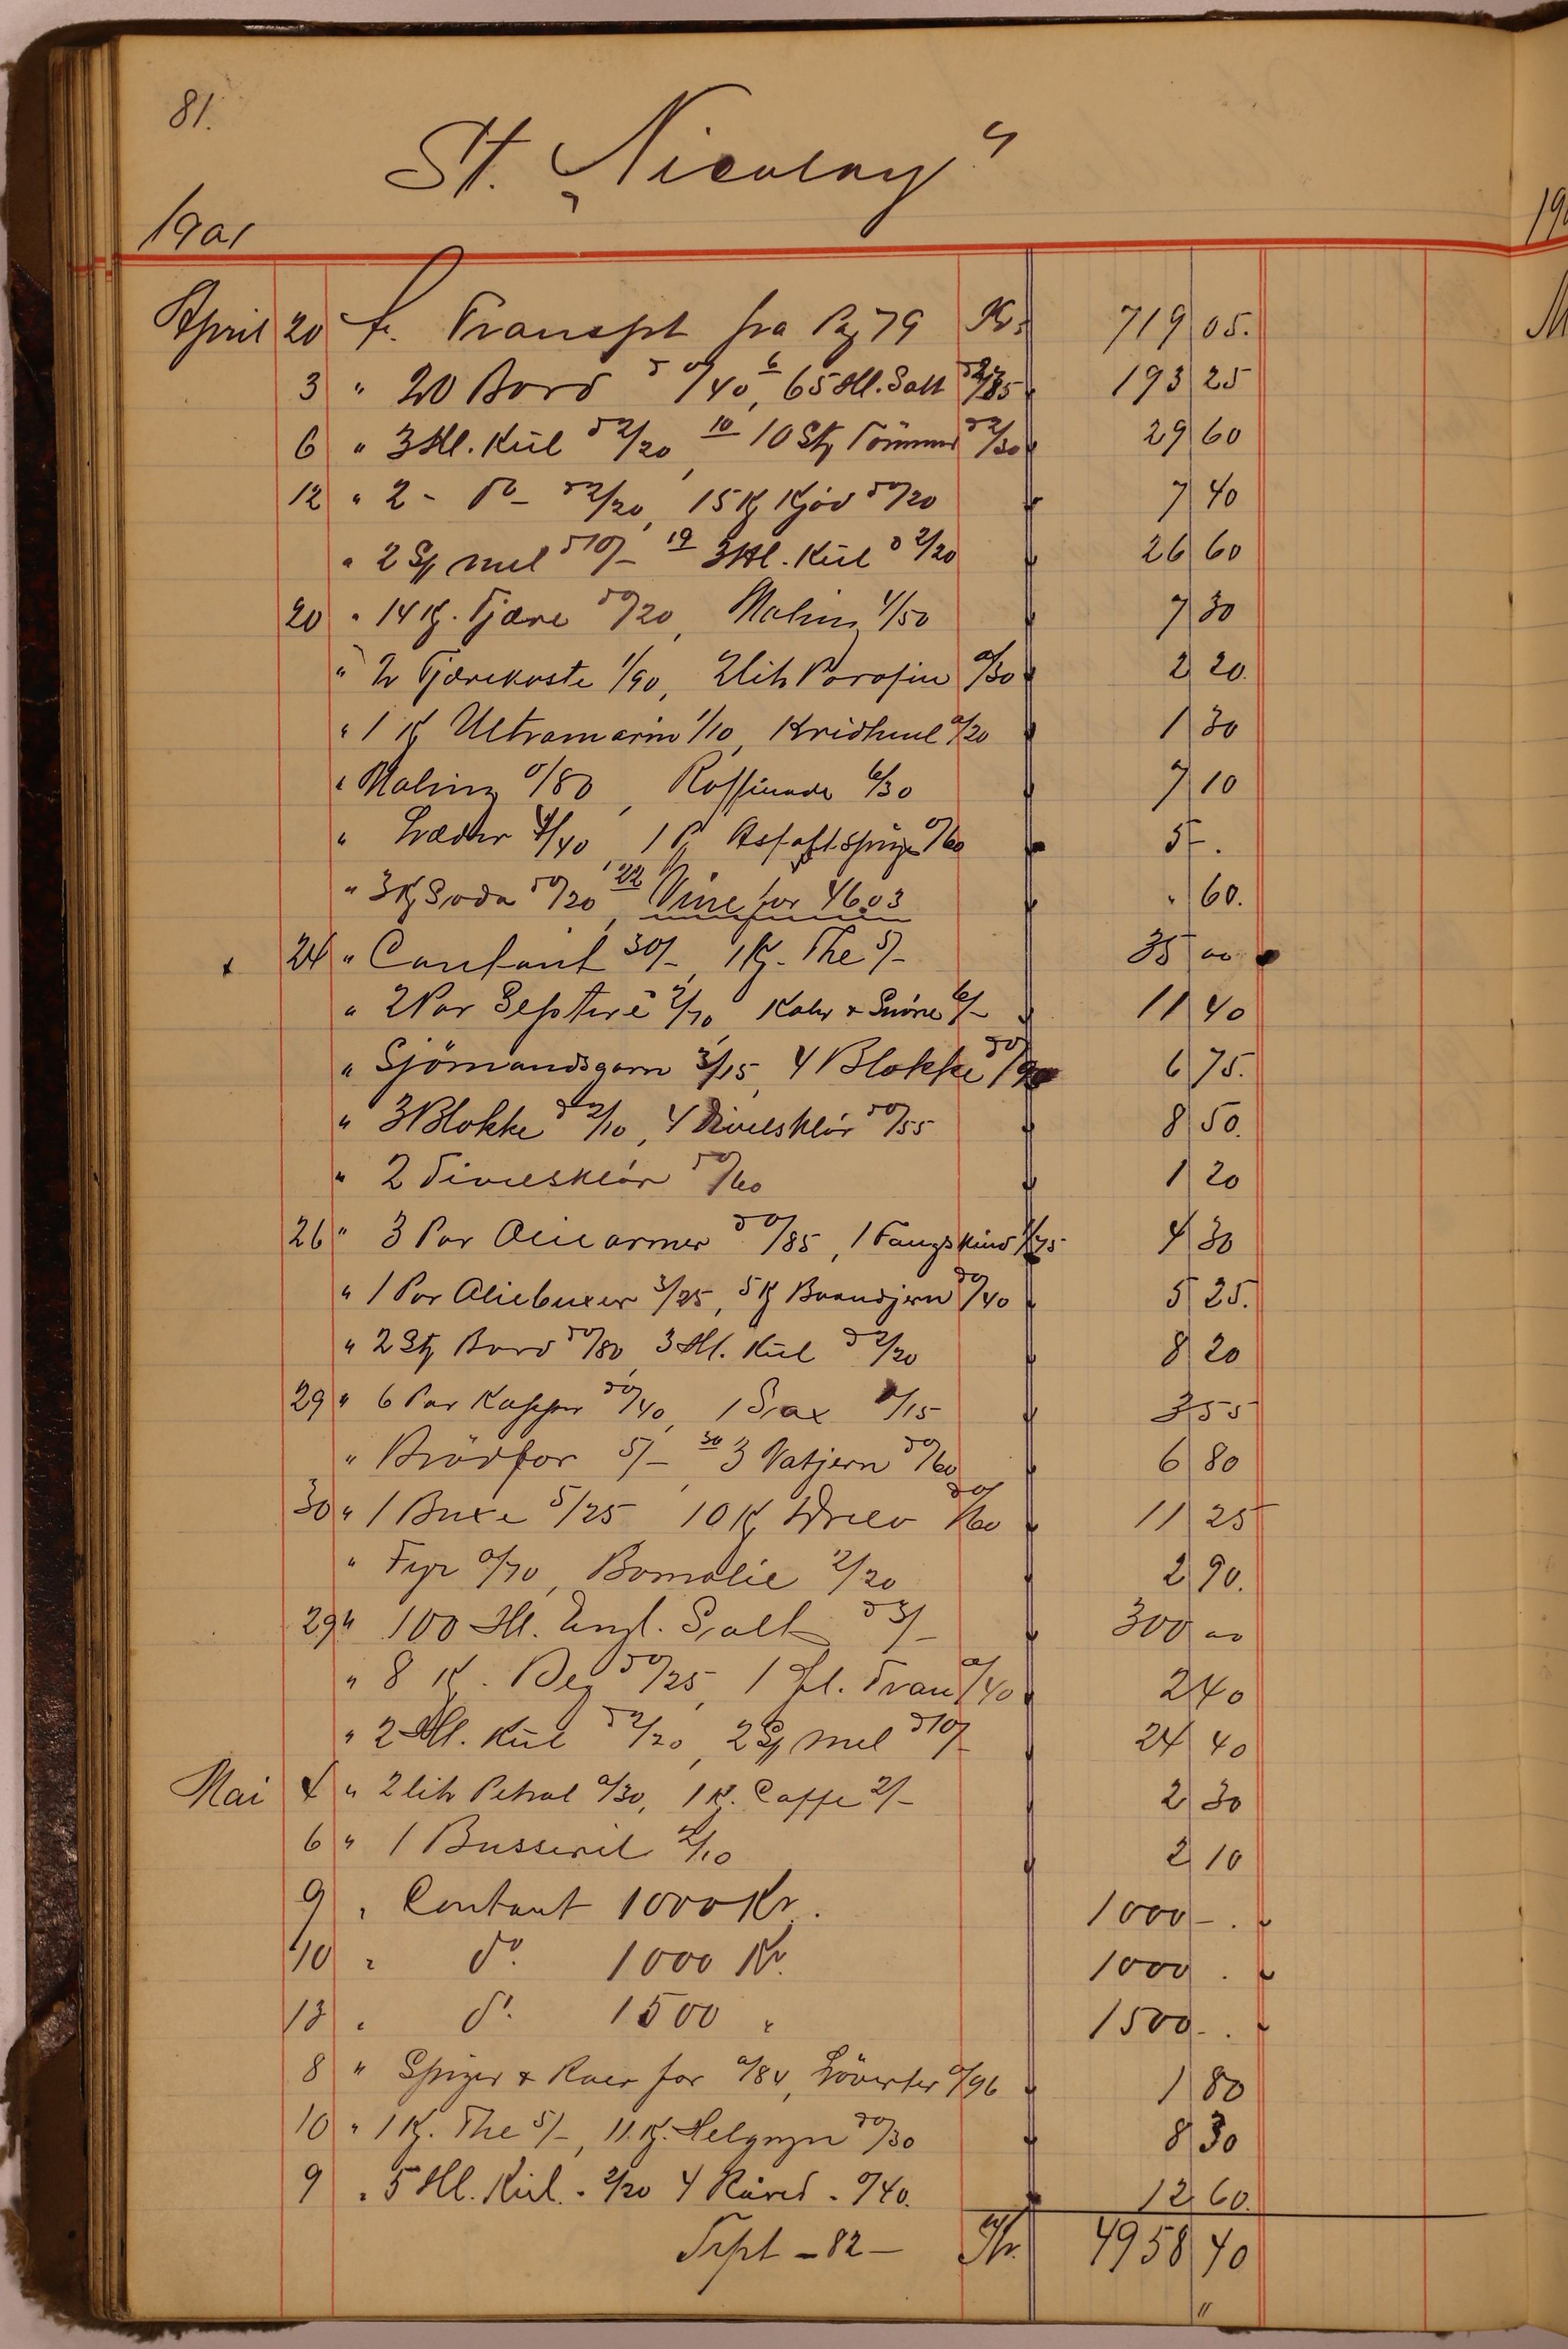 81.
St. „Nicolay“
1901
April 20 fr. Transpt fra Pag 79 Kr. 719 05.
3 " 20 Bord à 0/40, 6 65 Hl. Salt à 2/85 193 25
6 " 3 Hl. Kul à 2/20, 10 10 Stk Tömmer à 2/30 29 60
12 " 2 - do - à 2/20, 15 Kg Kjöd à 0/20 7 40
" 2 Sk mel à 10/- 19 3 Hl. Kul à 2/20 26 60
20 " 14 Kg. Tjære à 0/20, Maling 4/50 7 30
" 2 Tjærekoste 1/90, 2 lit Parafin 0/30 2 20.
" 1 Kg Ultramarin 1/10, Kridhmel 0/20 1 30
" Maling 0/80, Raffinade 6/30 7 10
" Læder 4/40, 1 P Asfaltspriger 0/60 5 - .
" 3 Kg Soda à 0/20, 22 Vire for 46.03 " 60.
x 24 " Contant 30/-, 1 Kg. The 5/- 35 00
" 2 Par 2/70, & Snöre 6/- 11 40
" Sjömandsgarn 3/15, 4 Blokke à 0/90 6 75.
" 3 Blokke à 2/10, 4 Divelsklör à 0/55 8 50.
" 2 Divelsklör à 0/60 1 20
26 " 3 Par Oliearmer à 0/85, 1 Fangskind 1/75 4 30
" 1 Par Oliebuxer 3/25, 5 Kg Baandjern à 0/40 5 25.
" 2 Stk Bord à 0/80, 3 Hl. Kul à 2/20 8 20
29 " 6 Par Kapper à 0/40, 1 Sax 1/15 3 55
" Brödfor 5/- 30 3 Vatjern à 0/60 6 80
30 " 1 Buxe 5/25 10 Kg Drev à 0/60 11 25
" Fyr 0/70, Bomolie 2/20 2 90.
29 " 100 Hl. Engl. Salt à 3/- 300 00
" 8 K. Beg à 0/25, 1 Fl. Tran 0/40 2 40
" 2 Hl. Kul à 2/20, 2 Sk mel à 10/- 24 40
Mai 4 " 2 lit Petrol 0/30, 1 K. Caffe 2/- 2 30
6 " 1 Busserul 2/10 2 10
9 " Contant 1000 Kr. 1000 - .
10 " do. 1000 Kr. 1000 .
13 " do. 1500 " 1500 - .
8 " Spiger & Roer for 0/84, 0/96 1 80
10 " 1 Kg. The 5/-, 11 Kg. Helgryn à 0/30 8 30
9 " 5 Hl. Kul. - 2/20 4 - 0/40. 12 60.
Trpt - 82 - Kr. 4958 40
"
190
M